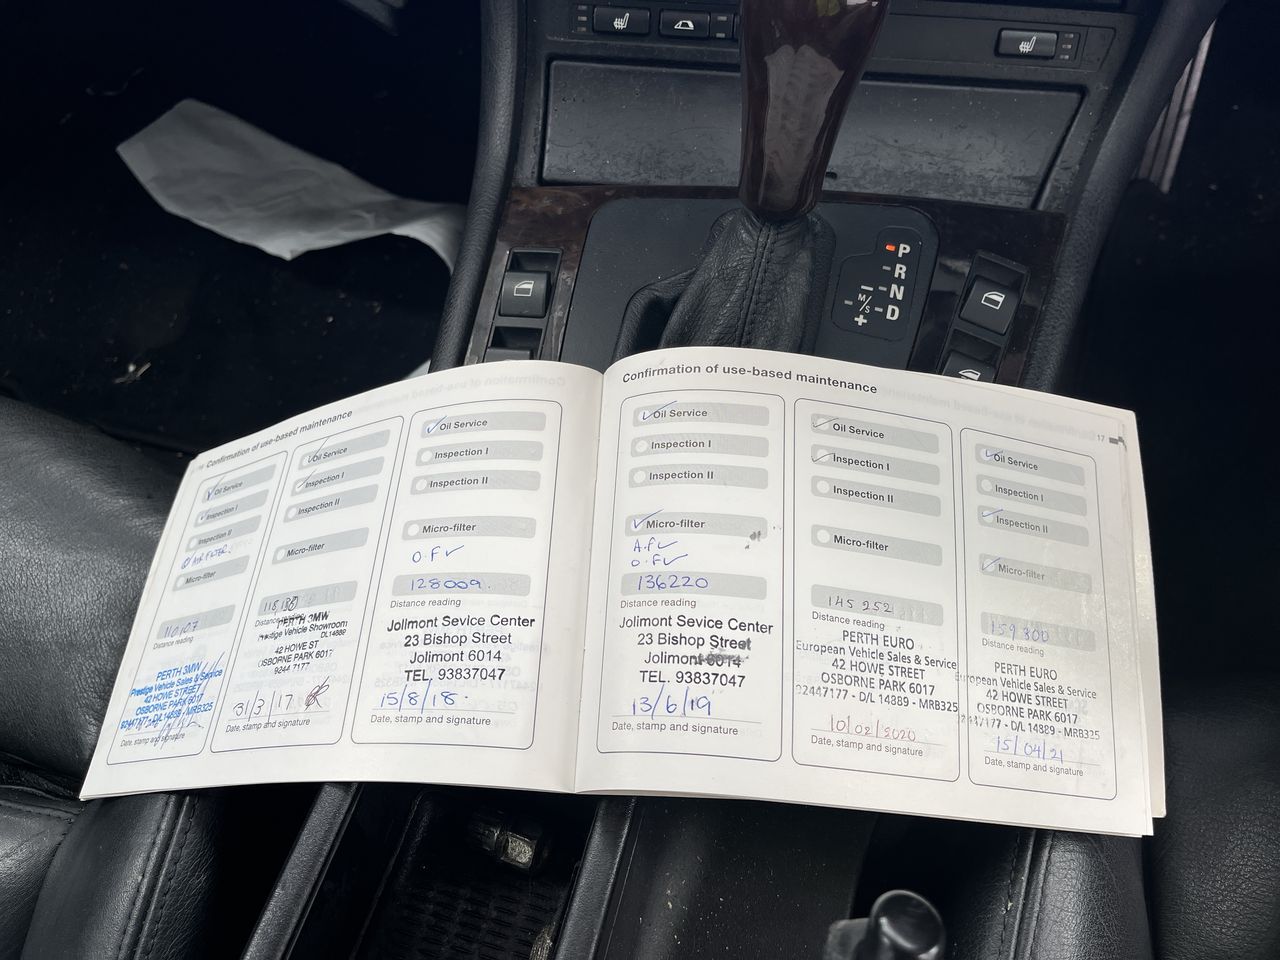 P
R
N
D
M/S
+
Confirmation of use-based maintenance
Oil Service
Inspection I
Inspection II
AIR FILTER.
Micro-filter
110107
Distance reading
PERTH 3MW
Prestige Vehicle Sales & Service
42 HOWE STREET
OSBORNE PARK 6017
92447177 - D/L 14889 - MRB325
Date, stamp and signature
Oil Service
Inspection I
Inspection II
Micro-filter
Distance reading
PERTH 3MW
Prestige Vehicle Showroom
DL14889
42 HOWE ST
OSBORNE PARK 6017
9244 7177
3/3/17
Date, stamp and signature
Oil Service
Inspection I
Inspection II
Micro-filter
O.F✓
128009.
Distance reading
Jolimont Sevice Center
23 Bishop Street
Jolimont 6014
TEL. 93837047
15/8/18.
Date, stamp and signature
Confirmation of use-based maintenance
17
Oil Service
Inspection I
Inspection II
Micro-filter
A.F✓
O.F✓
136220
Distance reading
Jolimont Sevice Center
23 Bishop Street
Jolimont 6014
TEL. 93837047
13/6/19
Date, stamp and signature
Oil Service
Inspection I
Inspection II
Micro-filter
145252
Distance reading
PERTH EURO
European Vehicle Sales & Service
42 HOWE STREET
OSBORNE PARK 6017
92447177 - D/L 14889 - MRB325
10/02/2020
Date, stamp and signature
Oil Service
Inspection I
Inspection II
Micro-filter
159300
Distance reading
PERTH EURO
European Vehicle Sales & Service
42 HOWE STREET
OSBORNE PARK 6017
92447177 - D/L 14889 - MRB325
15/04/21
Date, stamp and signature